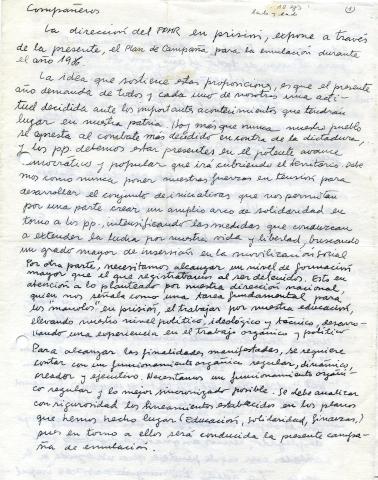 Compañeros
①
La dirección del FPMR en prisión, expone a través
de la presente, el Plan de Campaña, para la emulación durante
el año 1986
La idea que sostiene esta proposiciones, es que el presente
año demanda de todos y cada uno de nosotros una acti-
tud decidida ante los importantes acontecimientos que tendrán
lugar en nuestra patria. Hoy más que nunca nuestro pueblo
se apresta al combate más decidido en contra de la dictadura,
y los pp. debemos estar presentes en el potente avance
democrático y popular que irá cubriendo el territorio. Debe
mos como nunca poner nuestras fuerzas en tensión para
desarrollar el conjunto de iniciativas que nos permitan
por una parte crear un amplio arco de solidaridad en
torno a los pp, intensificando las medidas que conduzcan
a extender la lucha por nuestra vida y libertad, buscando
un grado mayor de inserción en la movilización social
Por otra parte, necesitamos alcanzar un nivel de formación
mayor que el que registrábamos al ser detenidos. Esto en
atención a lo planteado por nuestra dirección nacional,
quien nos señala como una tarea fundamental para
los "manolos" en prisión, el trabajar por nuestra educación,
elevando nuestro nivel político, ideológico y técnico, desarro-
llando una experiencia en el trabajo orgánico y político
Para alcanzar las finalidades manifestadas, se requiere
contar con un funcionamiento orgánico, regular, dinámico,
creador y ejecutivo. Necesitamos un funcionamiento orgáni-
co regular y lo mejor sincronizado posible. Se debe analizar
con rigurosidad los lineamientos establecidos en los planes
que hemos hecho llegar (Educación, solidaridad, finanzas,)
pues en torno a ellos será conducida la presente campa-
ña de emulación.